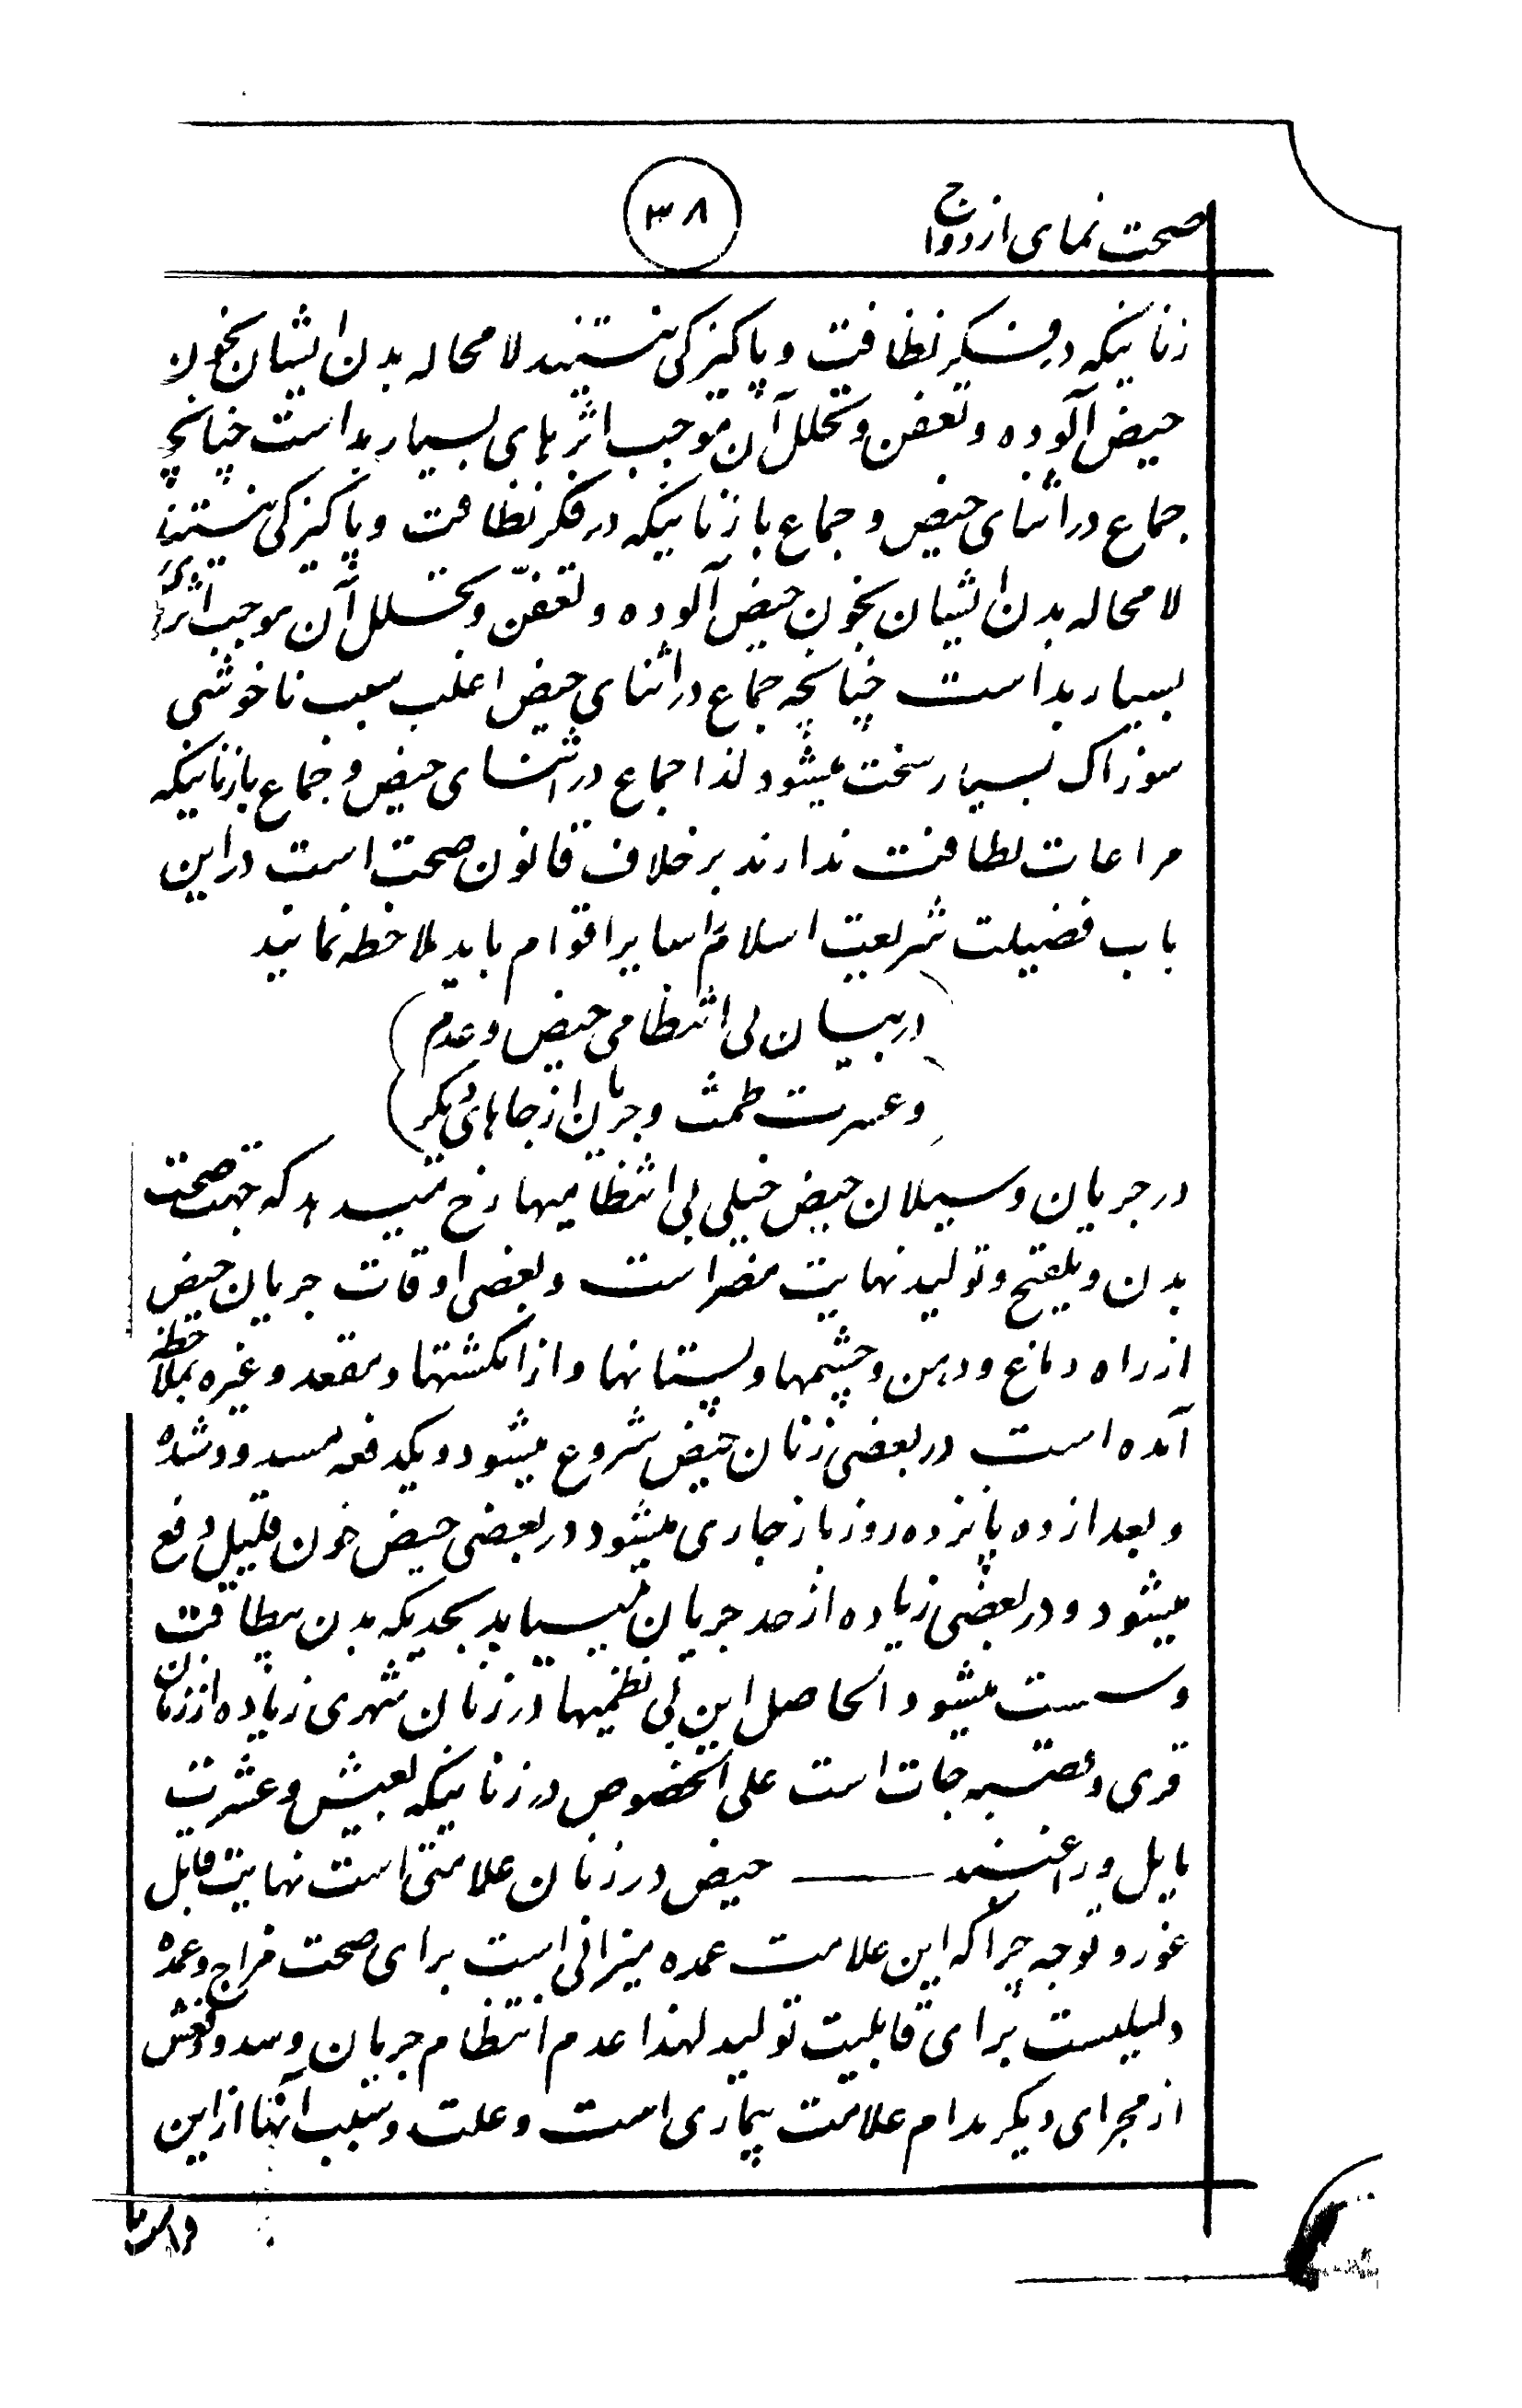 صحت نمای ازدواج
۳۸
زنانیکه در فکر نظافت و پاکیزکی نیستند لا محاله بدن ایشان بخون
حیض آلوده و تعفن و تحلل آن موجب اثرهای بسیار بد است چنانچه
جماع در اثنای حیض و جماع با زنانیکه در فکر نظافت و پاکیزکی نیستند
لا محاله بدن ایشان بخون حیض آلوده و تعفّن و تحلل آن موجب اثرهای
بسیار بد است چنانچه جماع در اثنای حیض اغلب سبب ناخوشی
سوزاک بسیار سخت میشود لذا جماع در اثنای حیض و جماع با زنانیکه
مراعات نظافت ندارند بر خلاف قانون صحت است در این
باب فضیلت شریعت اسلام را سایر اقوام باید ملاحظه نمایند
(در بیان بی انتظامی حیض و عدم)
(و عسرت طمث و جریان از جاهای دیکر)
در جریان و سیلان حیض خیلی بی انتظامیها رخ میدهد که جهت صحت
بدن و تلقیح و تولید نهایت مضر است و بعضی اوقات جریان حیض
از راه دماغ و دهن و چشمها و پستانها و از انکشتها و مقعد و غیره بملاحظه
آمده است در بعضی زنان حیض شروع میشود و یکدفعه مسدود شده
و بعد از ده پانزده روز باز جاری میشود در بعضی حیض خون قلیل دفع
میشود و در بعضی زیاده از حد جریان مییابد بحدیکه بدن بیطاقت
و سست میشود الحاصل این بی نظمیها در زنان شهری زیاده از زنان
قری و قصبه جات است علی الخصوص در زنانیکه بعیش و عشرت
مایل و راغبند ـــ حیض در زنان علامتی است نهایت قابل
غور و توجه چرا که این علامت عمده میزانی است برای صحت مزاج و عمده
دلیلیست برای قابلیت تولید لهذا عدم انتظام جریان و سد و دفعش
از مجرای دیکر مدام علامت بیماری است و علت و سبب آنها از این